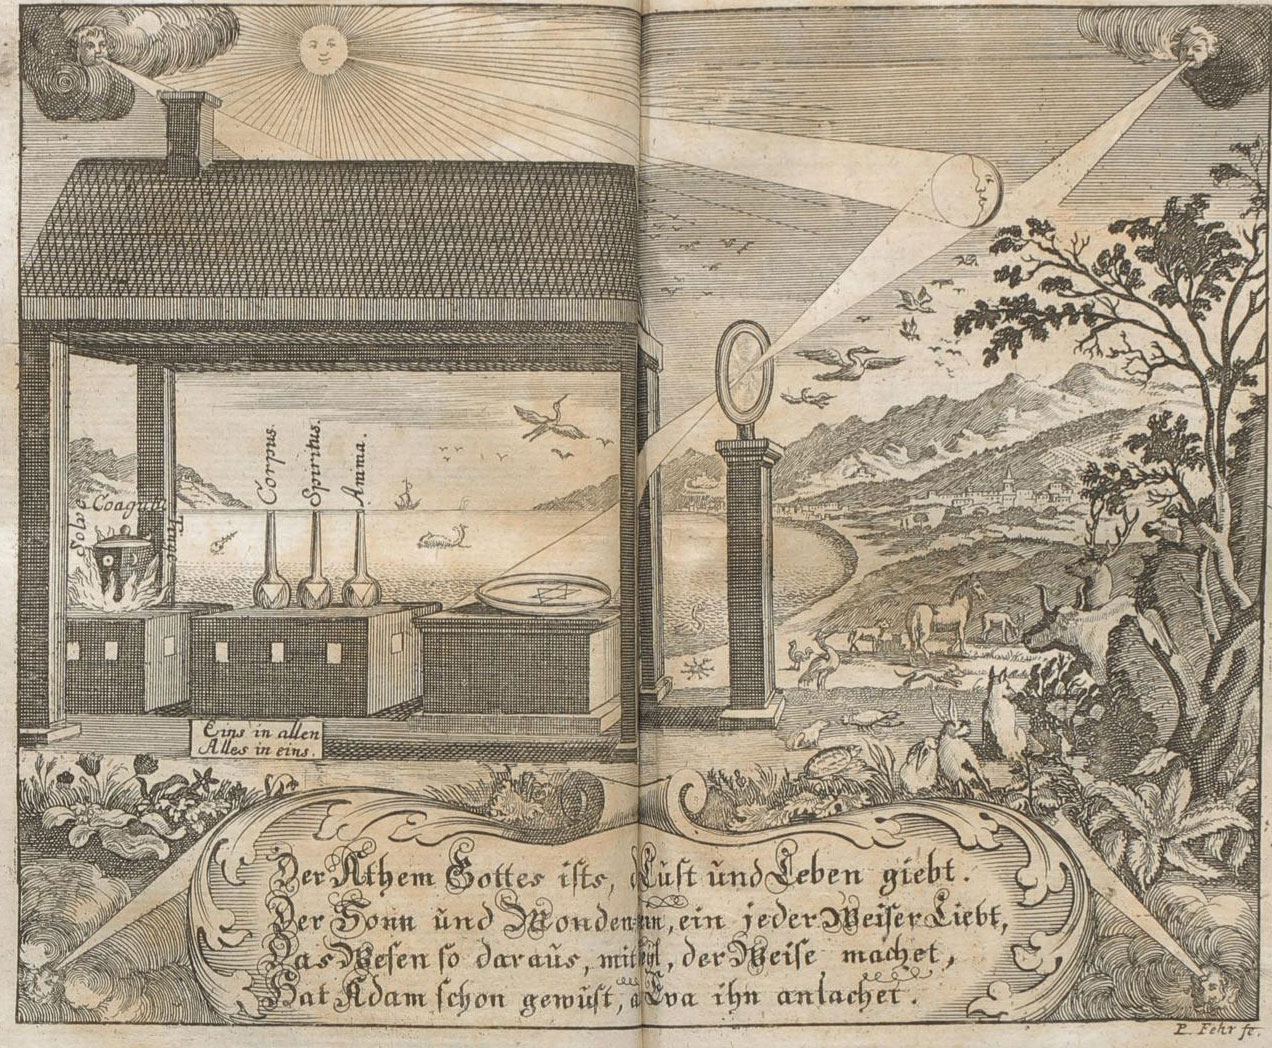 Solve
Coagula
Corpus.
Spiritus.
Anima.
Eins in allen
Alles in eins.
Der Athem Gottes ists, Lust ũnd Leben giebt.
Der Sonn ũnd Monden, ein jeder Weiser Liebt,
Das Wesen so daraũs, mit, der Weise machet,
Hat Adam schon gewũst, Eva ihn anlachet.
P. Fehr fe.